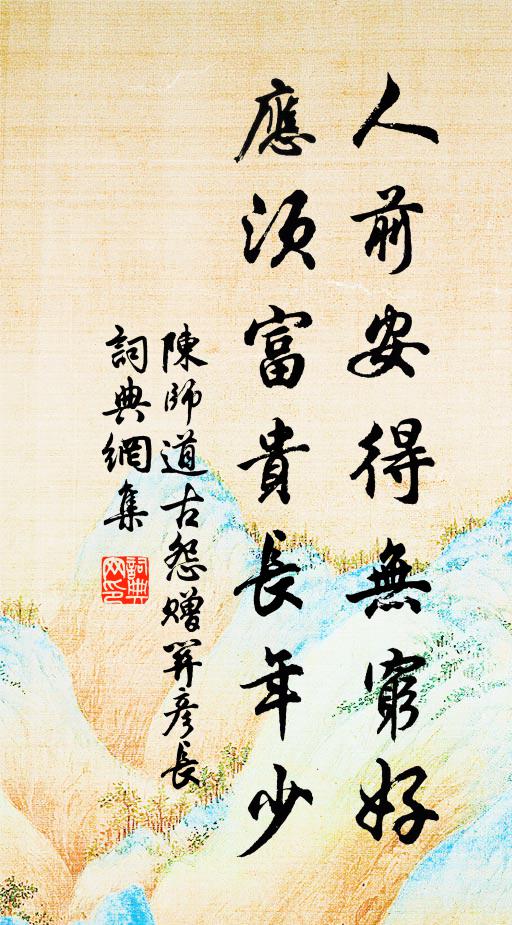 人前安得無窮好
應須富貴長年少
陳師道古怨贈晁彦長
詞典網集
詞典
网印